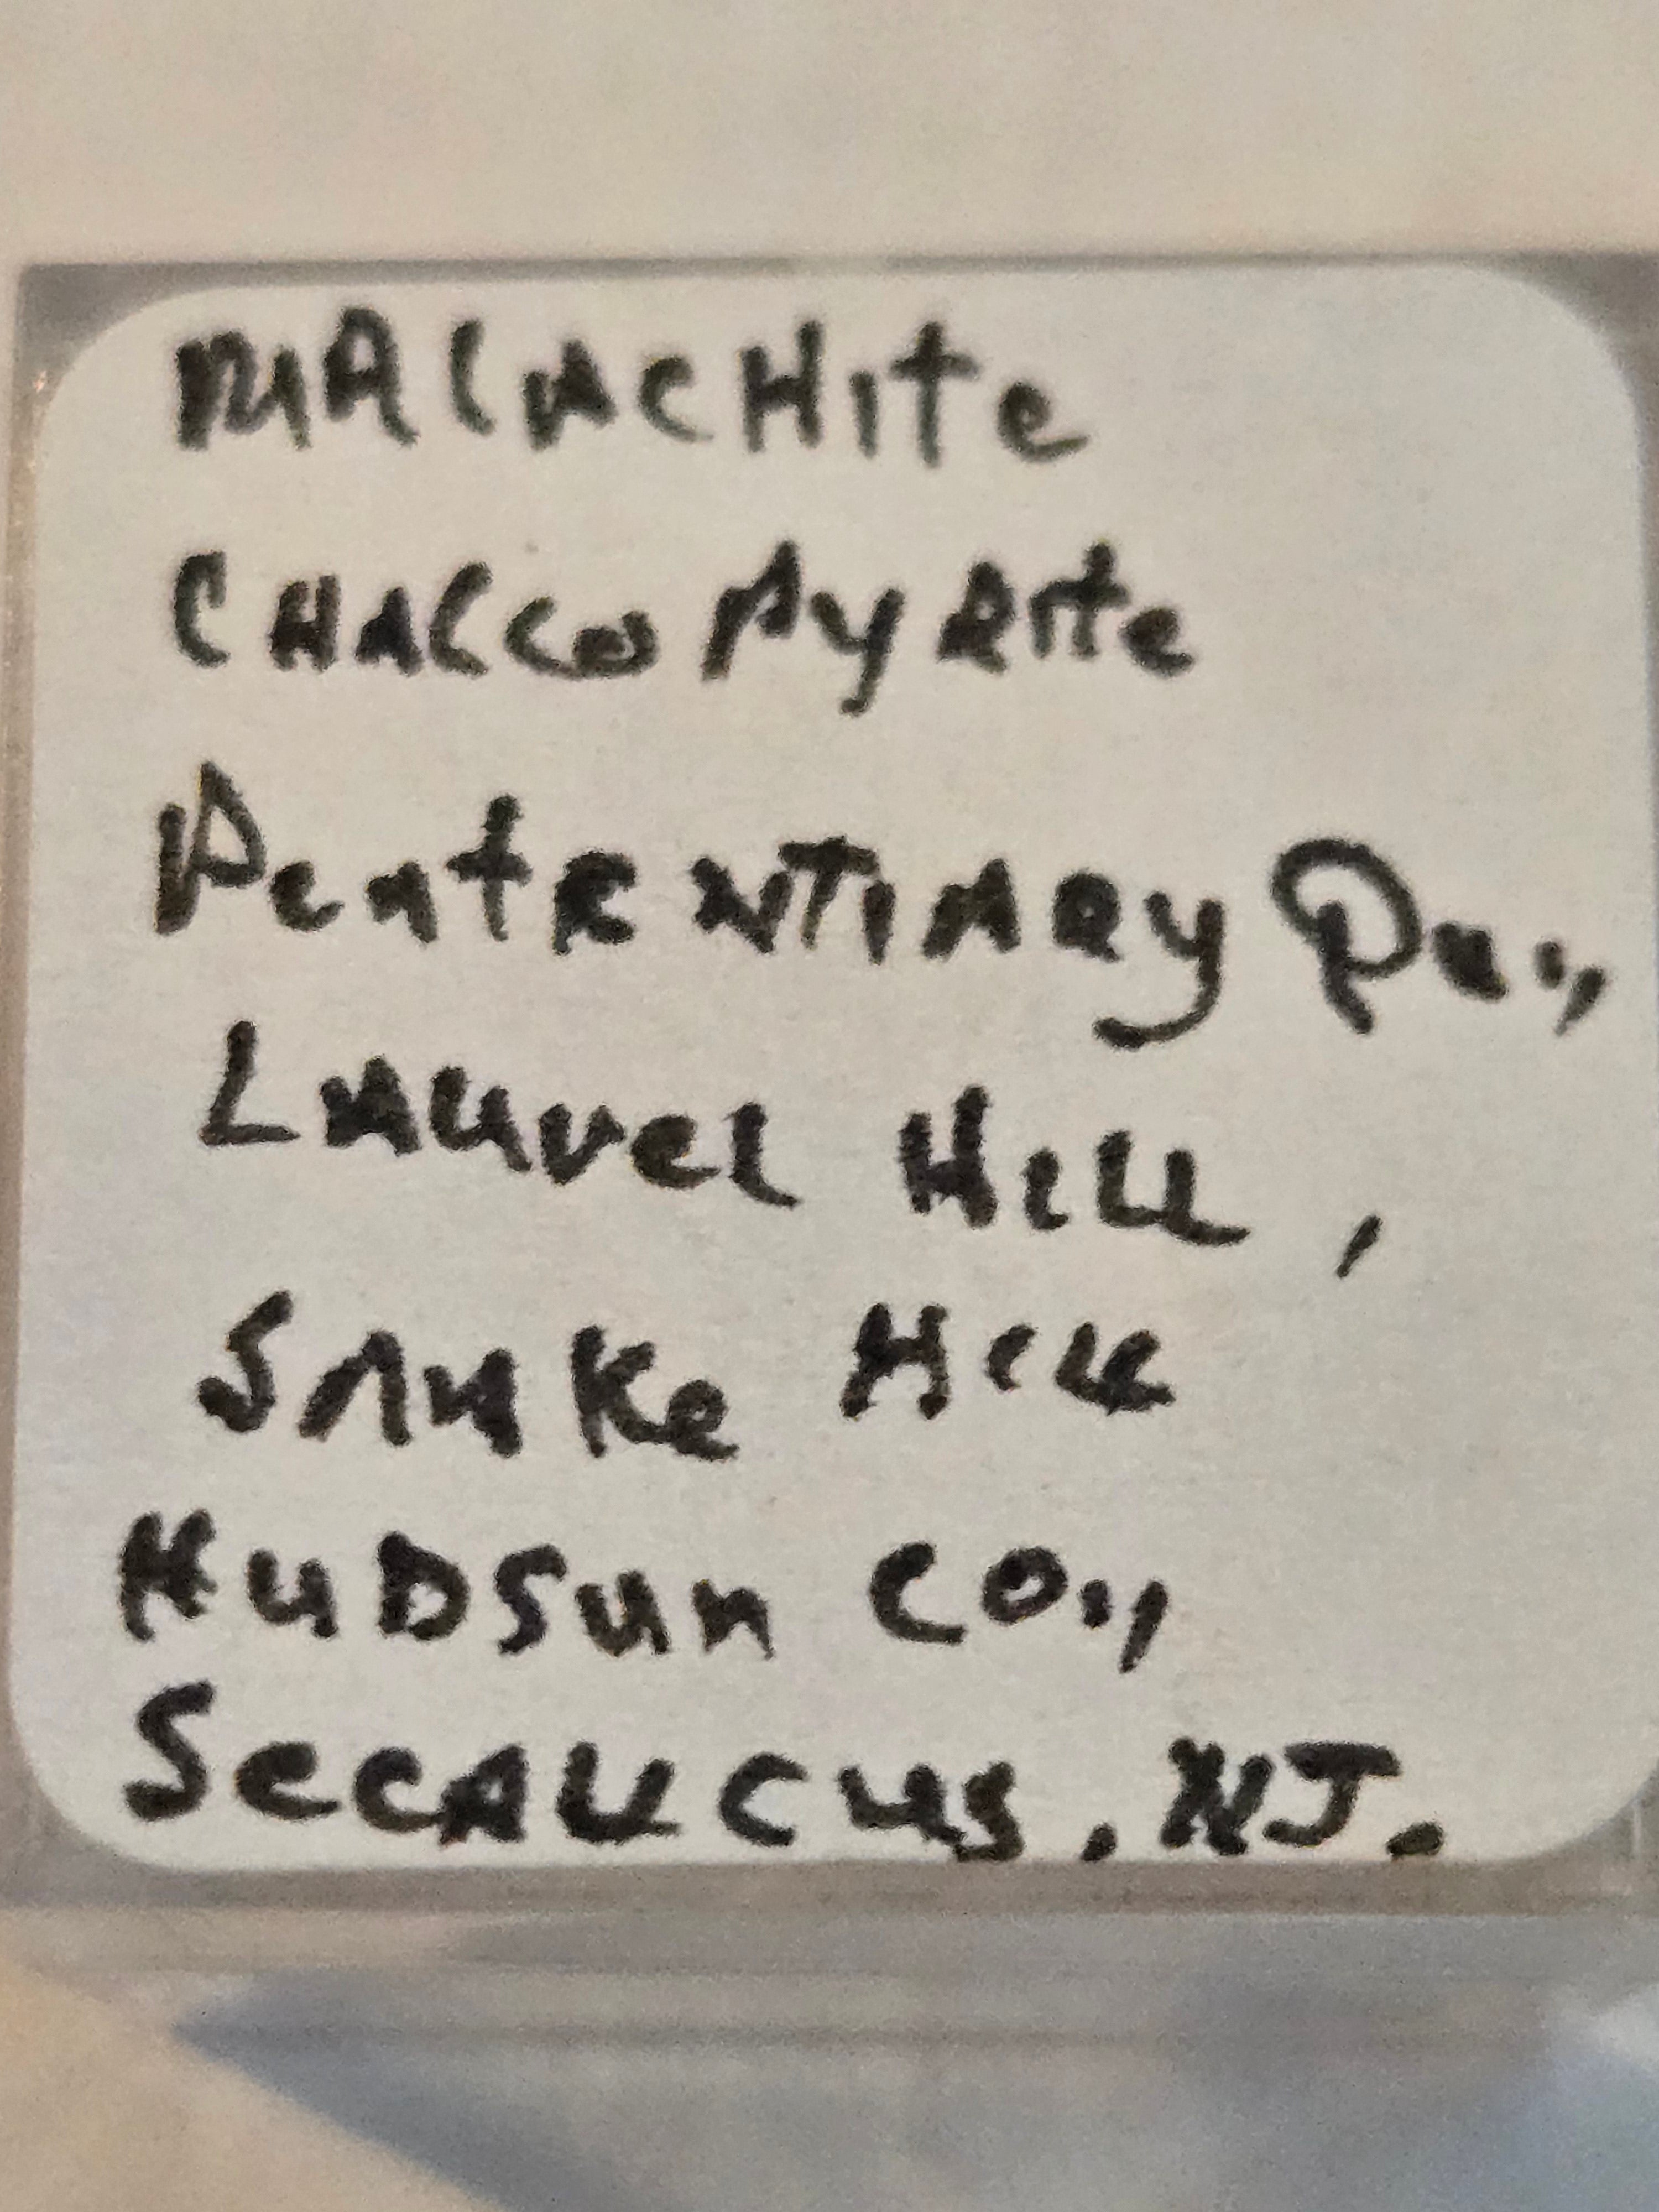 MALACHite
CHALCO PyRite
PentENTIARY Qu.,
LAUrel Hill,
SNAKe Hill
HuDSon CO.,
SecAUCus, NJ.